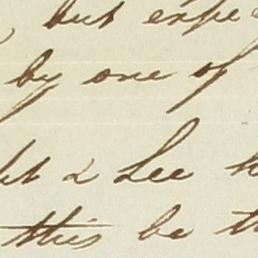 but expe
by one of
& Lee
this be th